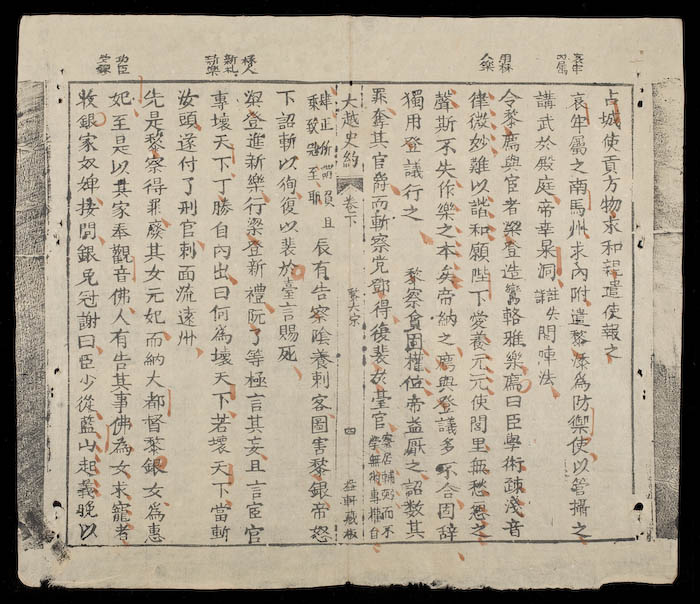 占城使貢方物求和詔遣使報之
哀牢屬之南馬州求內附遣黎為防禦使以管攝之
講武於殿庭帝幸杲洞 註失 閱陣法
令黎廌與宦者梁登造鸞輅雅樂廌曰臣學術疎淺音
律微妙難以諧和願陛下愛養元元使閭里無愁怨之
聲斯不失作樂之本矣帝納之廌與登議多不合固辭
獨用登議行之 黎察貪固權位帝益厭之詔數其
罪奪其官爵而斬察党鄧得復裴於臺官 察居補弼而不
學無術專權自
大越史約 卷下 黎太宗 四 益軒藏板
肆正所謂負且
乘致寇至耶 辰有告察陰養刺客圖害黎銀帝怒
下詔斬以徇復以裴於臺言賜死
梁登進新樂行梁登新禮阮了等極言其妄且言宦官
專壞天下丁勝自內出曰何為壞天下若壞天下當斬
汝頭遂付了刑官刺而流遠州
先是黎察得罪廢其女元妃而納大都督黎銀女為惠
妃至是以其家奉觀音佛人有告其事佛為女求寵者
收銀家奴婢按問銀免冠謝曰臣少從藍山起義晚以